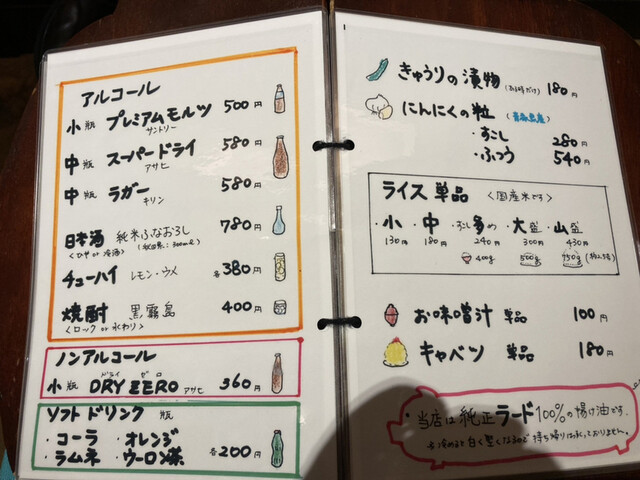 アルコール
小瓶 プレミアムモルツ 500円
サントリー
中瓶 スーパードライ 580円
アサヒ
中瓶 ラガー 580円
キリン
日本酒 純米ふなおろし 780円
チューハイ レモン・ウメ 各380円
焼酎 黒霧島 400円
<ロック or 水わり>
ノンアルコール
ドライ ゼロ
小瓶 DRY ZERO アサヒ 360円
ソフトドリンク 瓶
・コーラ ・オレンジ
・ラムネ ・ウーロン茶 各200円
きゅうりの漬物 180円
にんにくの粒 (青森県産)
・すこし 280円
・ふつう 540円
ライス 単品 <国産米です>
・小 ・中 ・すこし多め ・大盛 ・山盛
130円 180円 240円 300円 430円
400g 500g 750g
お味噌汁 単品 100円
キャベツ 単品 180円
・当店は純正ラード100%の揚げ油です。